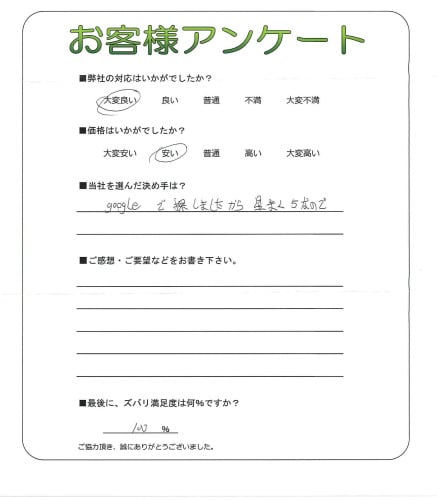 お客様アンケート
■弊社の対応はいかがでしたか?
大変良い 良い 普通 不満 大変不満
■価格はいかがでしたか?
大変安い 安い 普通 高い 大変高い
■当社を選んだ決め手は?
google で 探しましたから 星まん5なので
■ご感想・ご要望などをお書き下さい。
■最後に、ズバリ満足度は何%ですか?
100 %
ご協力頂き、誠にありがとうございました。